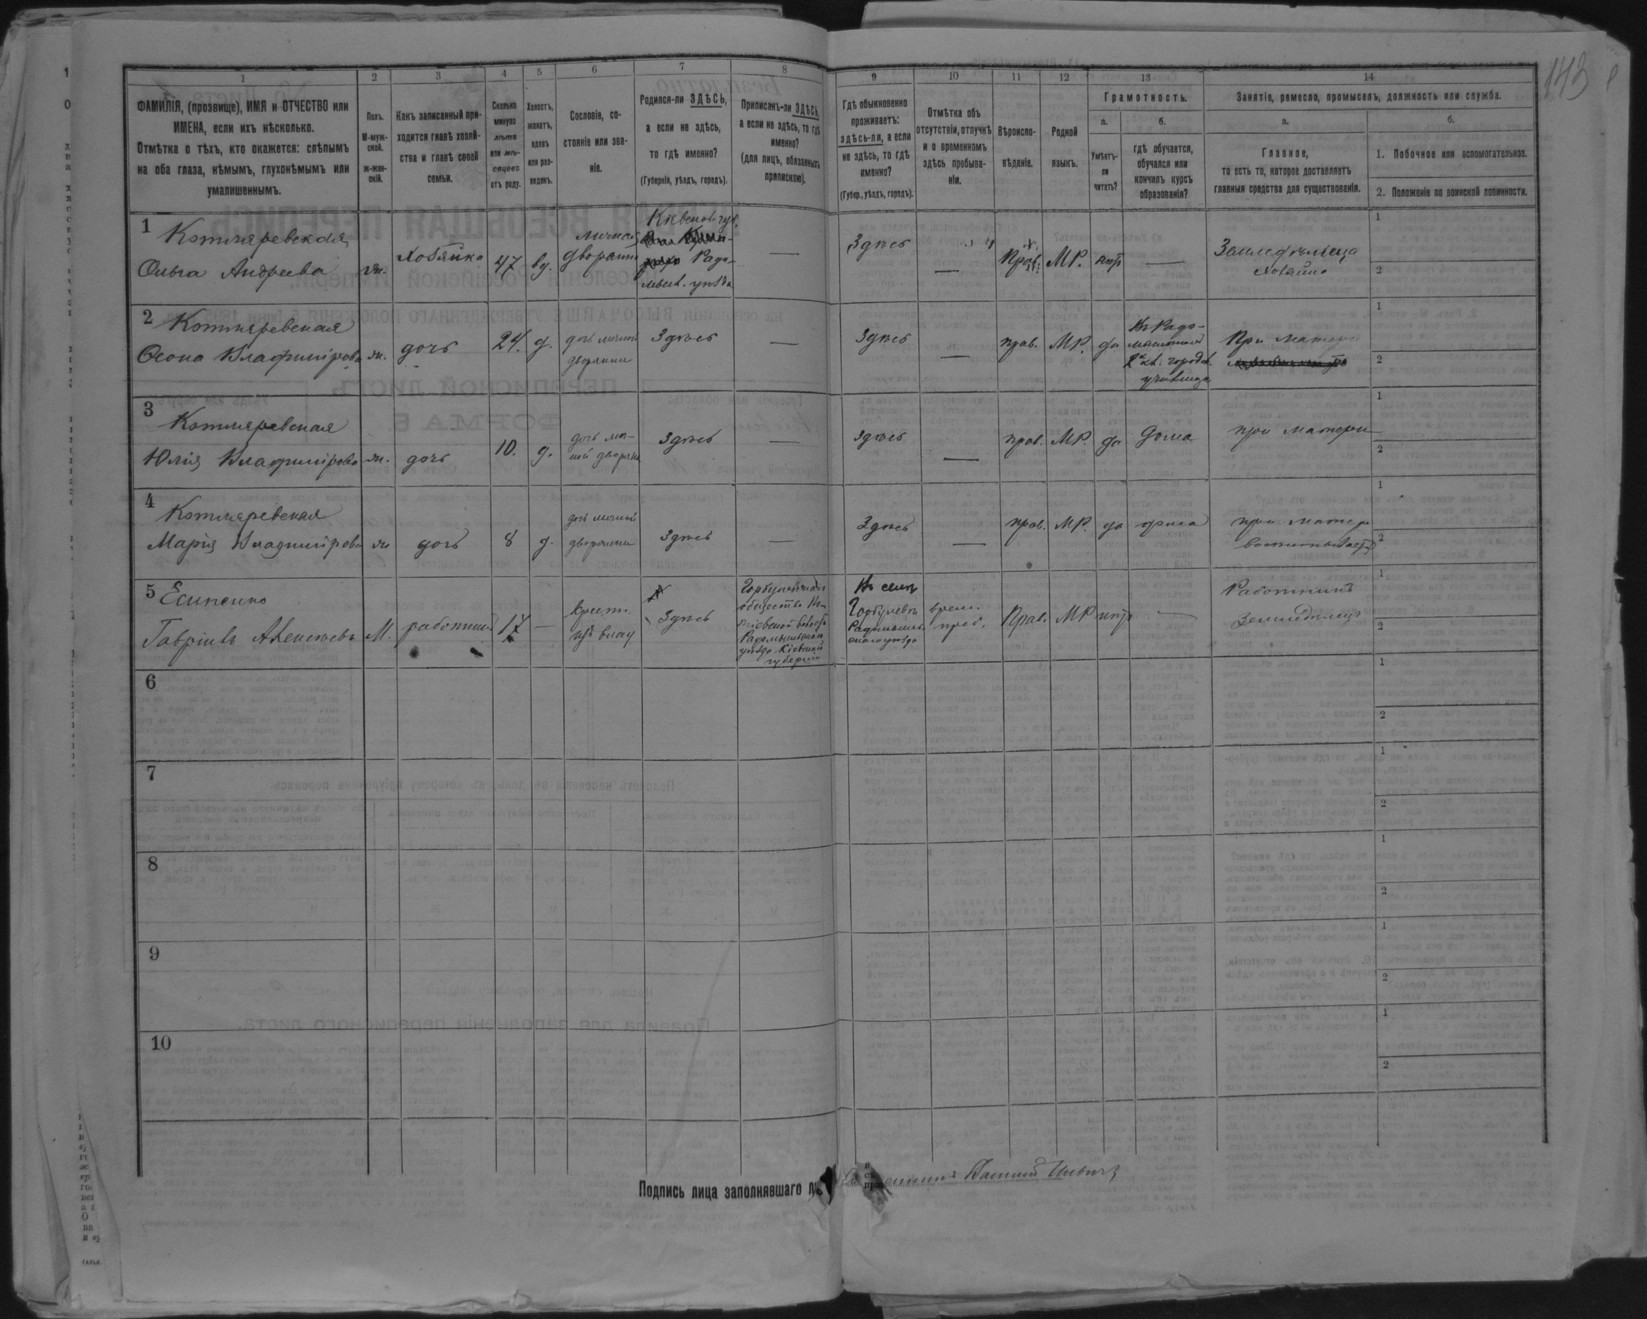 143
1 2 3 4 5 6 7 8 9 10 11 12 13 14
ФАМИЛІЯ, (прозвище), ИМЯ и ОТЧЕСТВО или
ИМЕНА, если ихъ нѣсколько.
Отмѣтка о тѣхъ, кто окажется: слѣпымъ
на оба глаза, нѣмымъ, глухонѣмымъ или
умалишеннымъ.
Полъ.
М-муж-
ской.
Ж-жен-
скій.
Какъ записанный при-
ходится главѣ хозяй-
ства и главѣ своей
семьи.
Сколько
минуло
лѣтъ
или мѣ-
сяцевъ
отъ роду.
Холостъ,
женатъ,
вдовъ
или раз-
веденъ.
Сословіе, со-
стояніе или зва-
ніе.
Родился-ли ЗДѢСЬ,
а если не здѣсь,
то гдѣ именно?
(Губернія, уѣздъ, городъ).
Приписанъ-ли ЗДѢСЬ,
а если не здѣсь, то гдѣ
именно?
(для лицъ, обязанныхъ
припискою).
Гдѣ обыкновенно
проживаетъ:
здѣсь-ли, а если
не здѣсь, то гдѣ
именно?
(Губер., уѣздъ, городъ).
Отмѣтка объ
отсутствіи, отлучкѣ
и о временномъ
здѣсь пребыва-
ніи.
Вѣроиспо-
вѣданіе.
Родной
языкъ.
Грамотность.
а.
Умѣетъ-
ли
читать?
б.
гдѣ обучается,
обучался или
кончилъ курсъ
образованія?
Занятіе, ремесло, промыселъ, должность или служба.
а.
Главное,
то есть то, которое доставляетъ
главныя средства для существованія.
б.
1. Побочное или вспомогательное.
2. Положеніе по воинской повинности.
1 Котляревская
Ольга Андреева
ж.
хозяйка
47
вд.
личная
дворянка
Кіевской губ.
Радо-
мысл. уѣзда
—
Здѣсь
—
Прав.
МР.
нѣтъ
—
Землевладѣлица
хозяйка
1
2
2 Котляревская
Владимірова
ж.
дочь
24.
д.
дочь личной
дворянки
Здѣсь
—
Здѣсь
—
прав.
МР.
да
2 кл. городск.
училище
При матери
1
2
3 Котляревская
Юлія Владимірова
ж.
дочь
10.
д.
дочь лич-
ной дворянки
Здѣсь
—
Здѣсь
—
прав.
МР.
да
дома
при матери
1
2
4 Котляревская
Марія Владимірова
ж
дочь
8
д.
дочь личной
дворянки
Здѣсь
—
Здѣсь
—
прав.
МР.
да
дома
при матери
1
2
5 Есипенко
Гавріилъ Алексѣевъ
М.
работникъ
17
—
Крест.
изъ влад
Здѣсь
общества
волости
Радомысльскаго
уѣзда Кіевской
губерніи
Въ селѣ
Горбулевѣ
врем.
преб.
Прав.
МР
нѣтъ
—
Работникъ
1
2
6
1
2
7
1
2
8
1
2
9
1
2
10
1
2
Подпись лица заполнявшаго